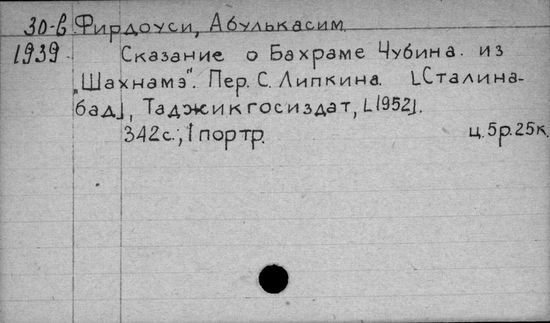 30-в Фирдоуси, Абулькасим.
1939 Сказание о Бахраме Чубина. из
„Шахнамэ". Пер. С. Липкина. [Сталина-
бад], Таджикгосиздат, [1952].
342с.; 1 портр. ц. 5р. 25к.